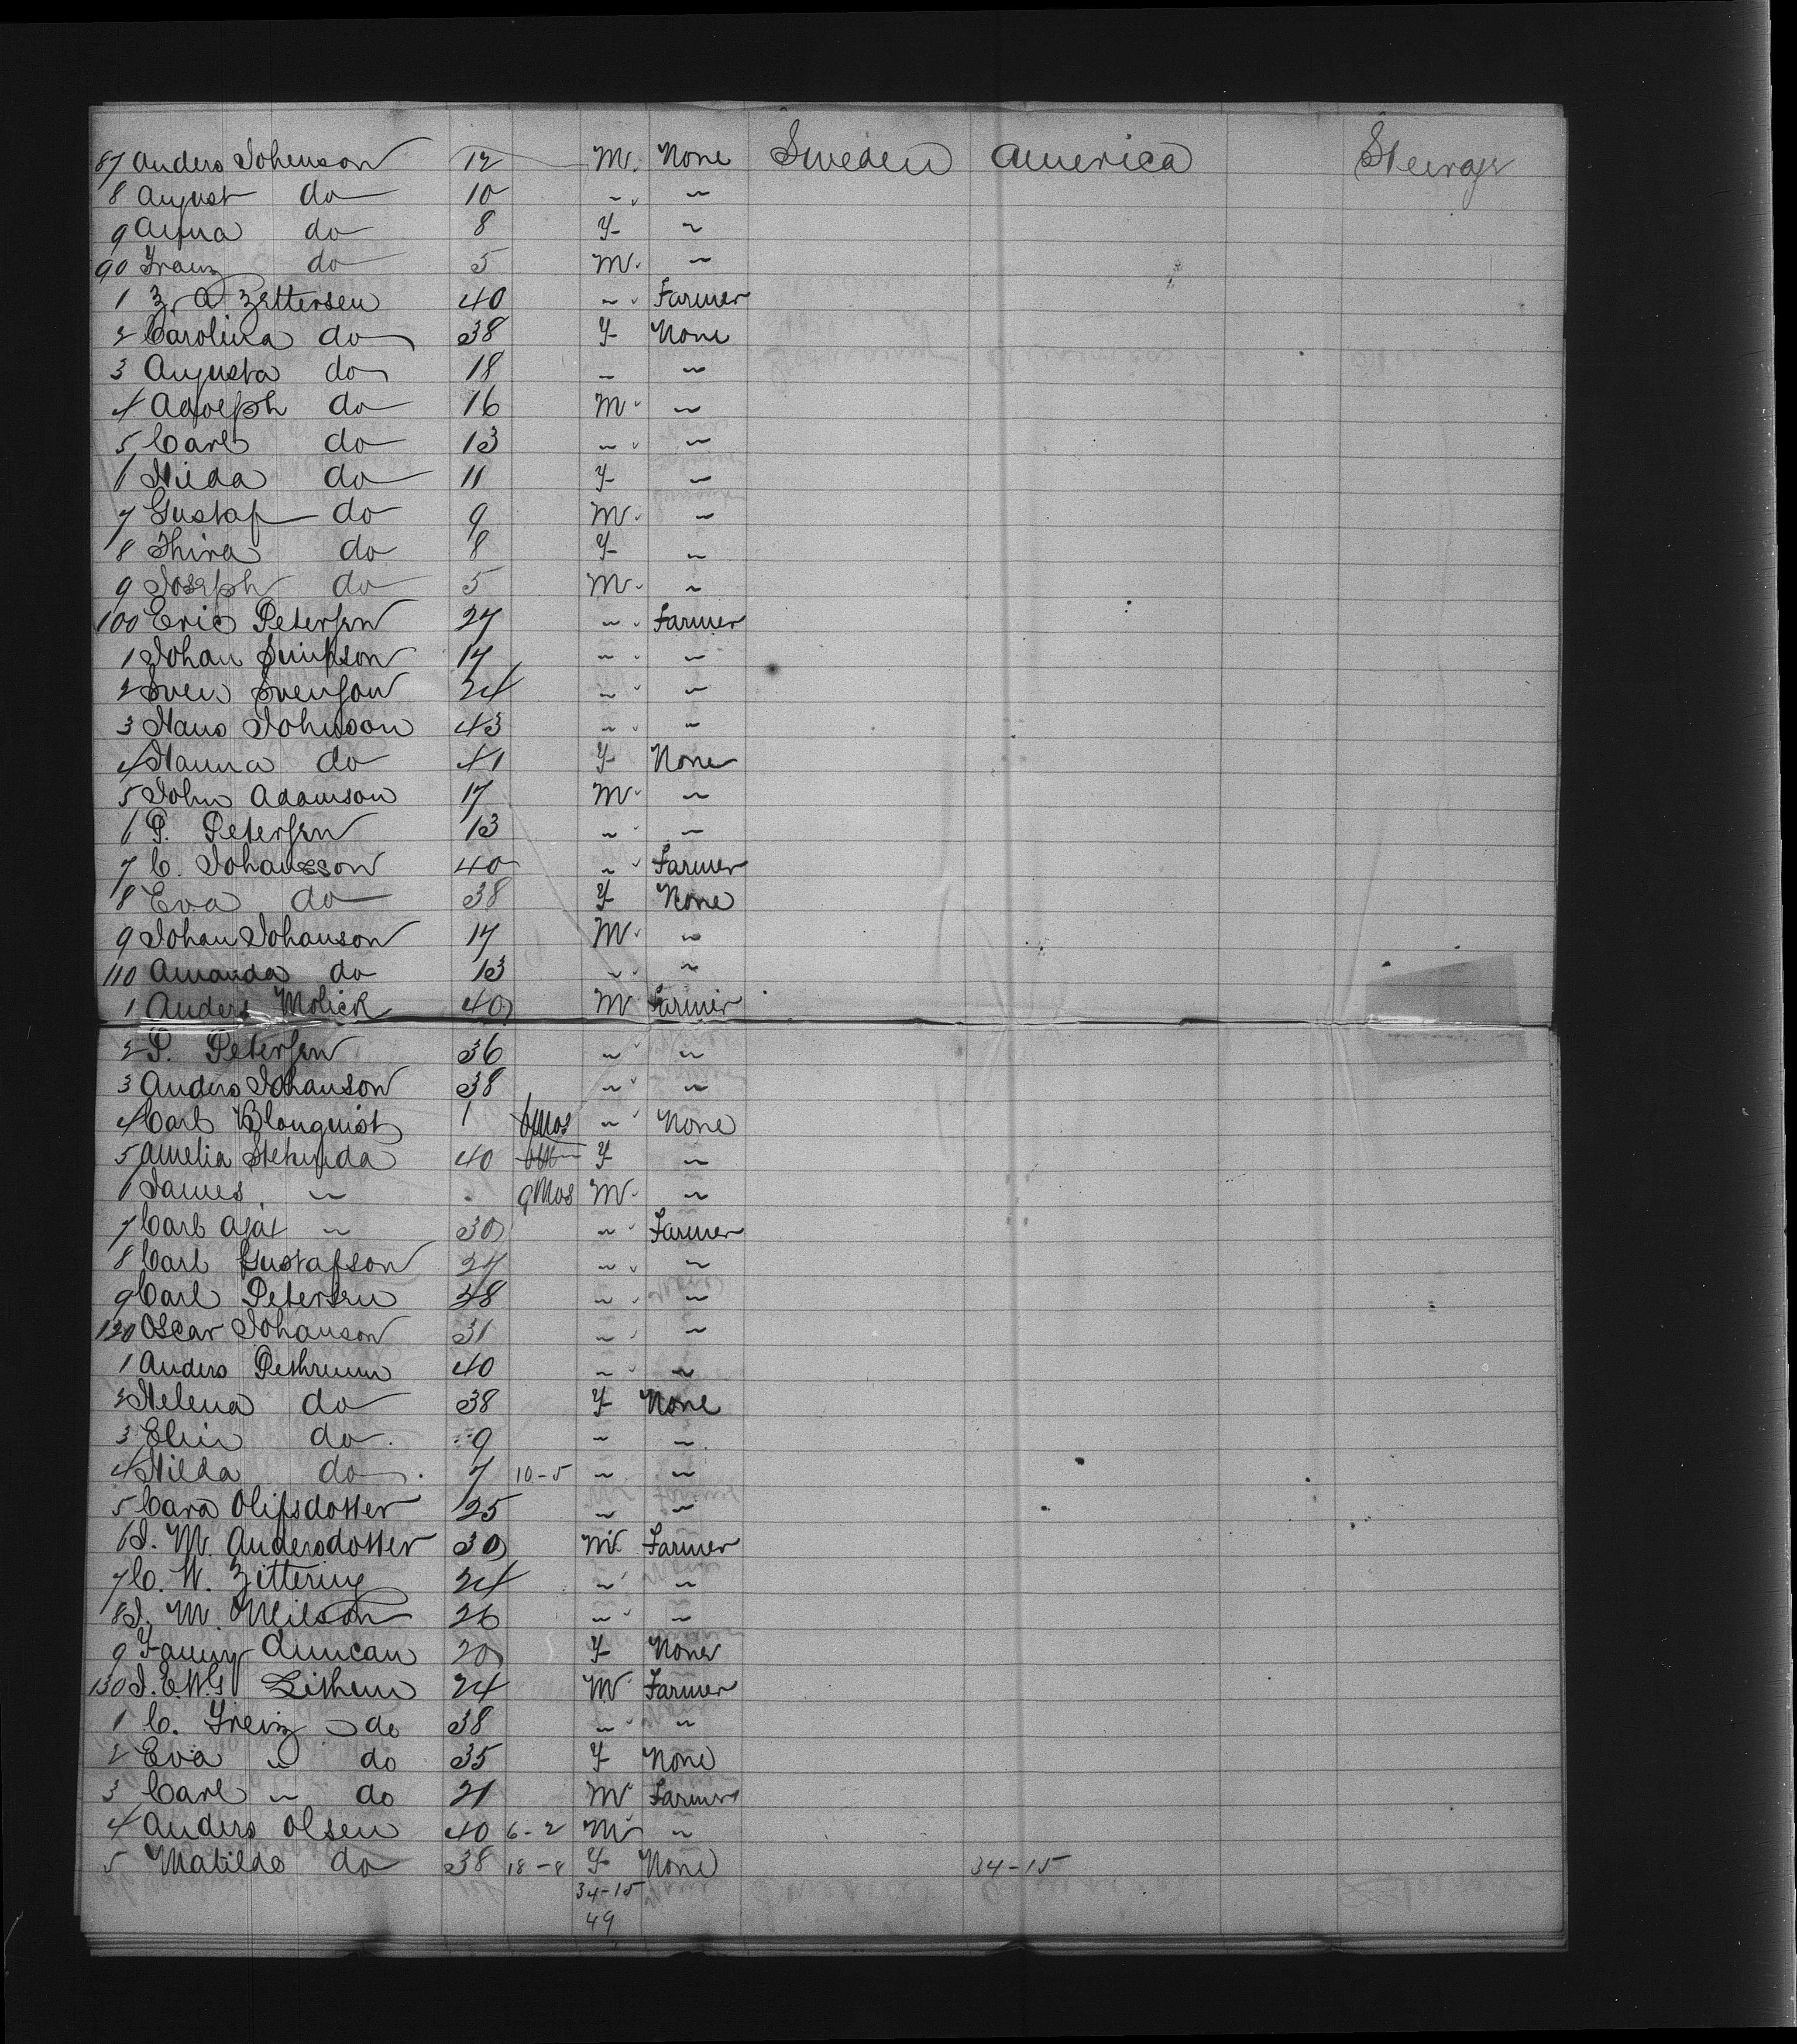 87 Anders Johenson 12 M. None Sweden America Steerage
8 August do 10 〃 〃
9 Anna do 8 F 〃
90 Franz do 5 M. 〃
1 Z. A Zettersen 40 〃 Farmer
2 Carolina do 38 F None
3 Augusta do 18 〃 〃
4 Adolph do 16 M 〃
5 Carl do 13 〃 〃
6 Hilda do 11 F 〃
7 Gustaf do 9 M. 〃
8 Thira do 8 F 〃
9 Joseph do 5 M 〃
100 Eric Petersen 27 〃 Farmer
1 Johan 17 〃 〃
2 Sven Svenson 24 〃 〃
3 Hans Johnson 43 〃 〃
4 Hanna do 41 F None
5 John Adamson 17 M 〃
6 P. Petersen 13 〃 〃
7 C. Johansson 40 〃 Farmer
8 Eva do 38 F None
9 Johan Johanson 17 M 〃
110 Amanda do 13 〃 〃
1 Anders Molick 40 M Farmer
2 P. Petersen 36 〃 〃
3 Anders Johanson 38 〃 〃
4 Carl Blonquist 1 6Mos 〃 None
5 Amelia 40 F 〃
6 James 〃 9Mos M 〃
7 Carl Ajax 〃 30 〃 Farmer
8 Carl Gustafson 27 〃 〃
9 Carl Petersen 38 〃 〃
120 Oscar Johanson 31 〃 〃
1 Anders Pethrum 40 〃 〃
2 Helena do 38 F None
3 Elin do 9 〃 〃
4 Hilda do 7 10-5 〃 〃
5 Cara Olifsdotter 25 〃 〃
6 J. M. Andersdotter 30 M. Farmer
7 C. W. Zittering 24 〃 〃
8 J. M. 26 〃 〃
9 Fanny Duncan 20 F None
130 J. E.W.G Lithun 24 M Farmer
1 C. Freiz 〃 do 38 〃 〃
2 Eva 〃 do 35 F None
3 Carl 〃 do 21 M Farmer
4 Anders Olsen 40 6-2 M 〃
5 Matilda do 38 18-8 F None 34-15
34-15
49